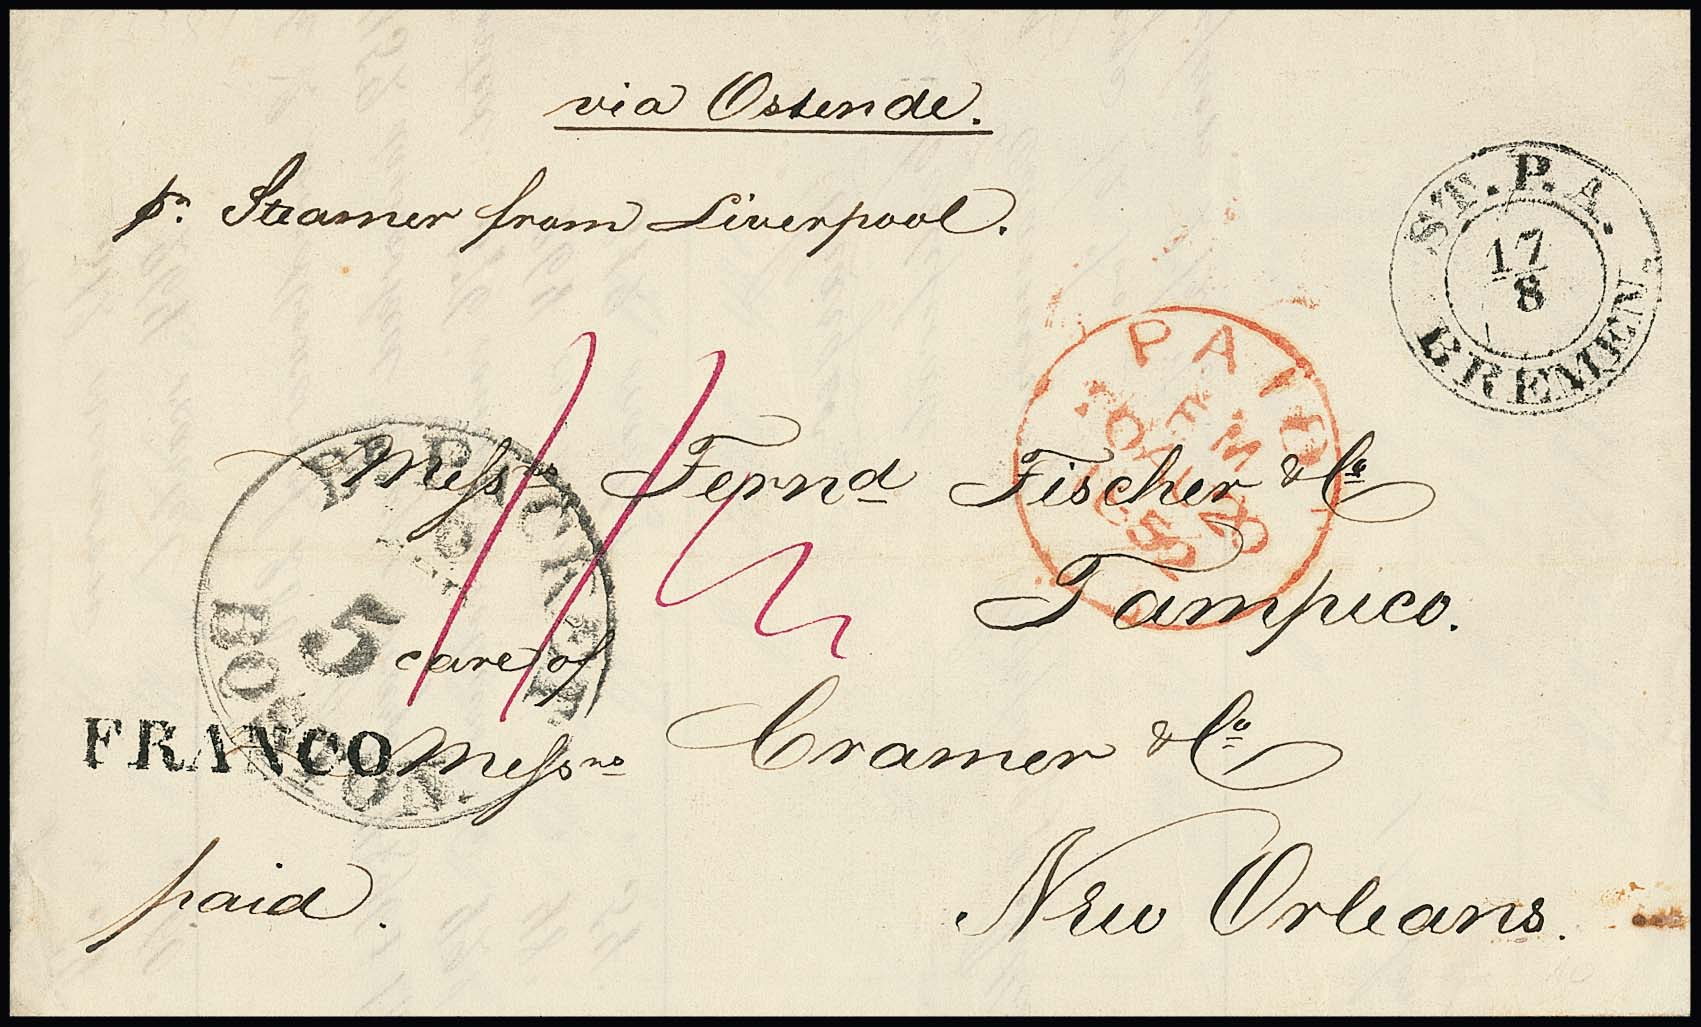 via Ostende.
pr. Steamer from Liverpool.
ST. P. A.
17/8
BREMEN.
PAID
Messrs Fernd Fischer & Co
Tampico.
BR. PACKET
5
BOSTON.
care of
FRANCO
Messrs Cramer & Co
paid.
New Orleans.